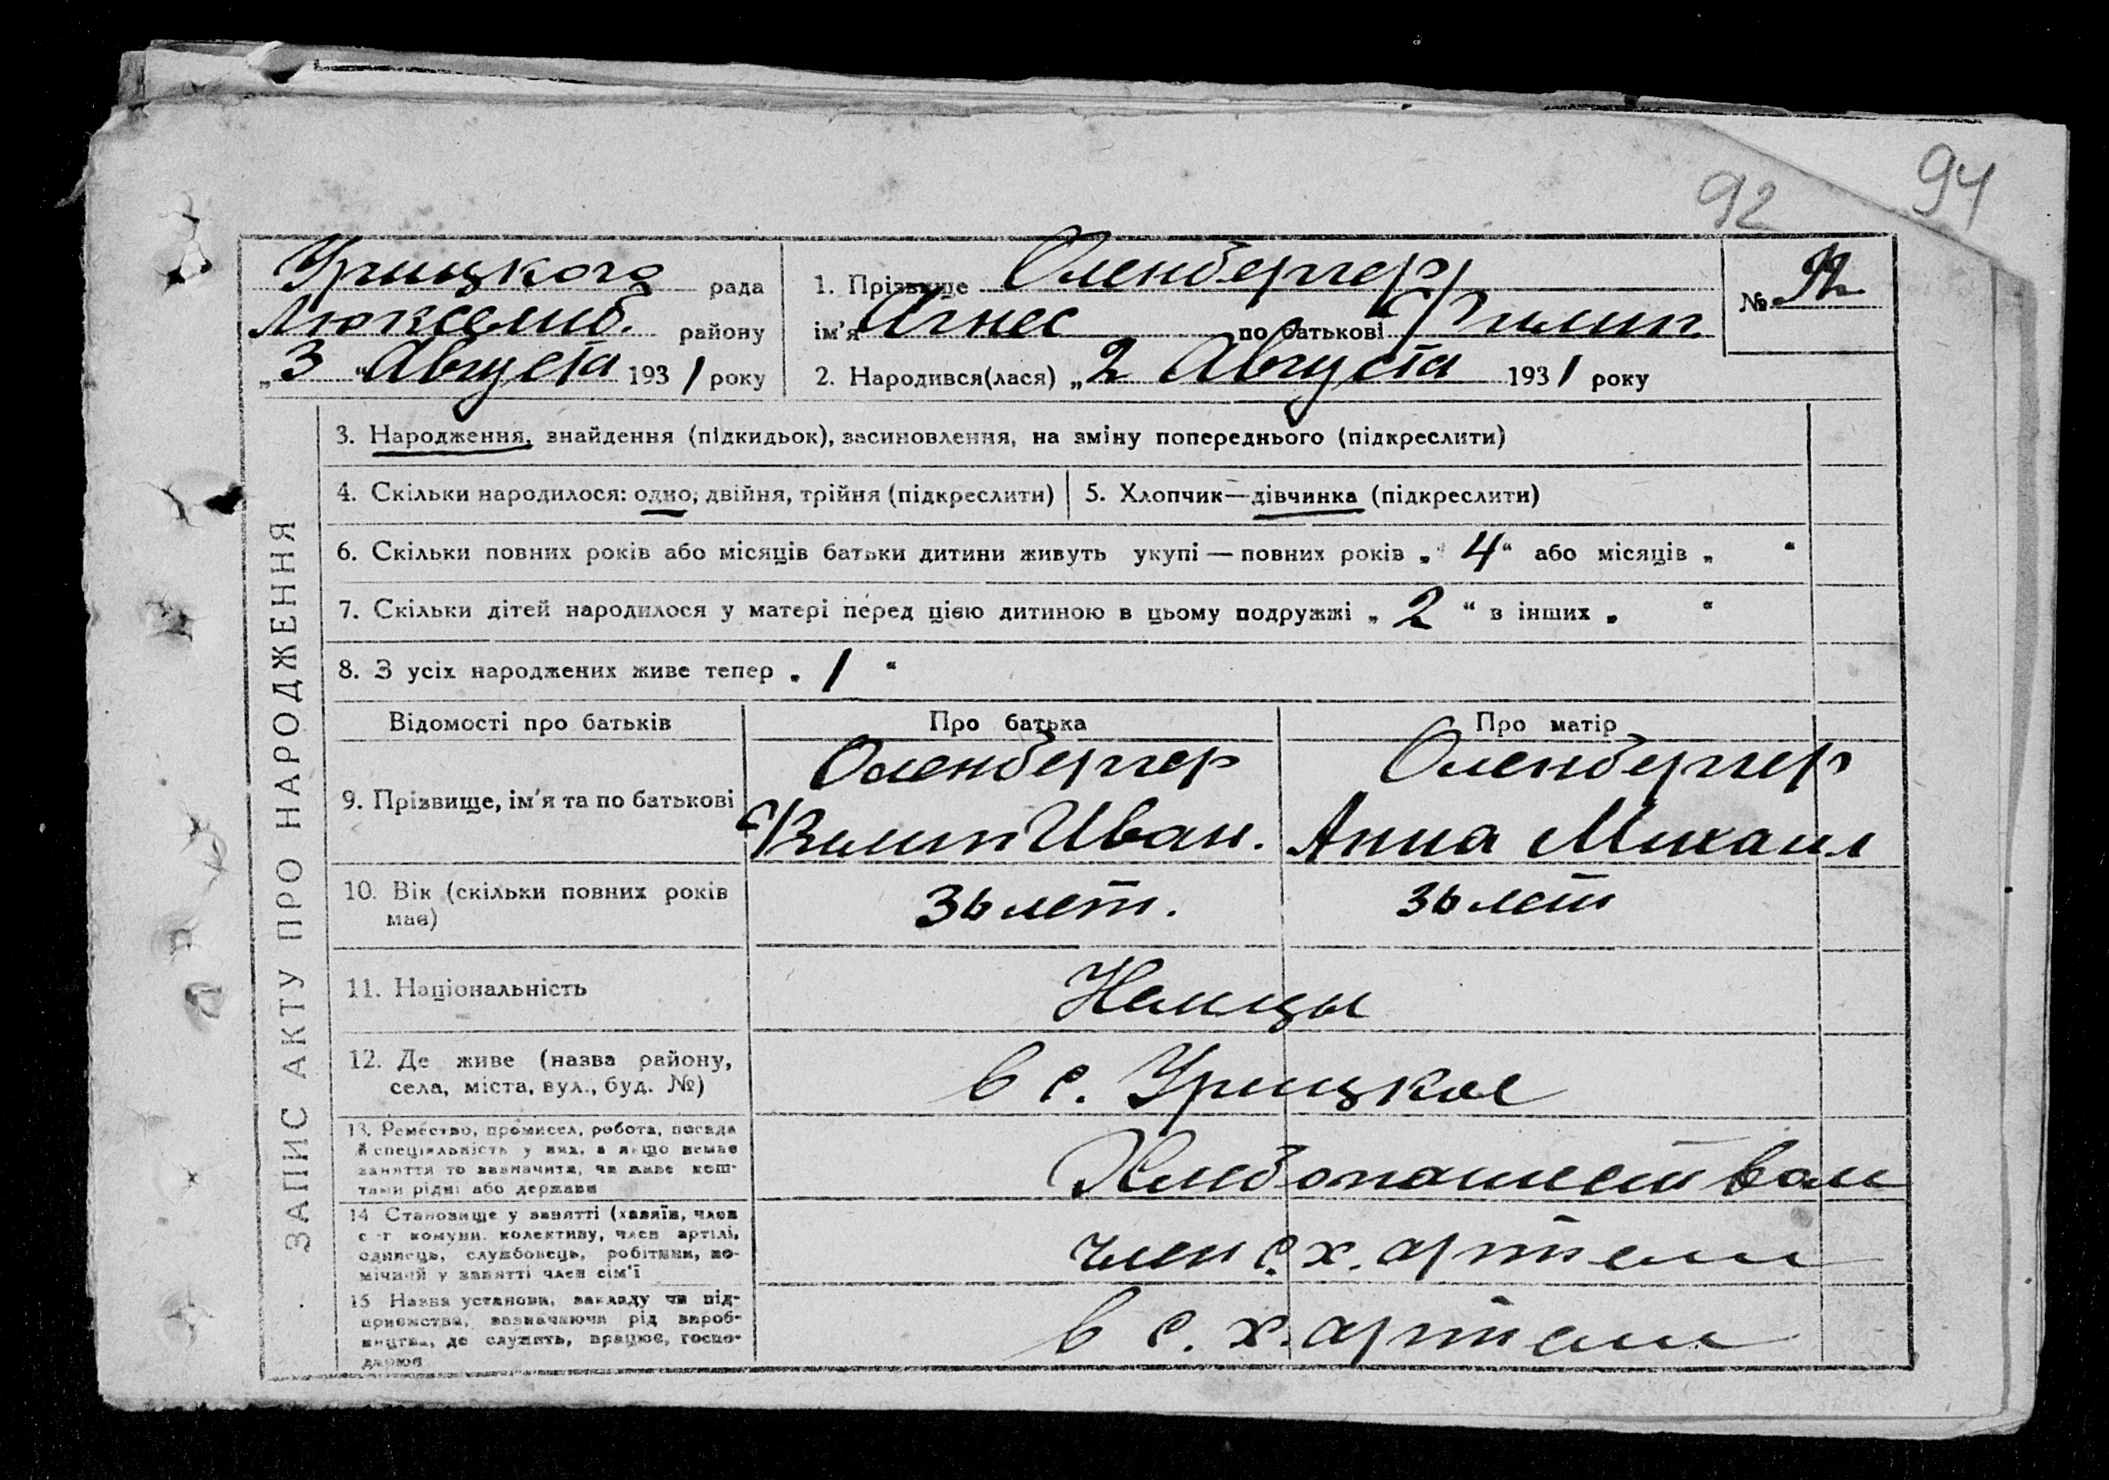 92
94
Урицкого рада
Люксемб. району
„3 “ Августа 1931 року
1. Прізвище Оленбергер
ім'я Агнес по батькові Филип.
2. Народився(лася) „2 Августа 1931 року
№ 92
ЗАПИС АКТУ ПРО НАРОДЖЕННЯ
3. Народження, знайдення (підкидьок), засиновлення, на зміну попереднього (підкреслити)
4. Скільки народилося: одно, двійня, трійня (підкреслити)
5. Хлопчик—дівчинка (підкреслити)
6. Скільки повних років або місяців батьки дитини живуть укупі — повних років „ 4“ або місяців „ “
7. Скільки дітей народилося у матері перед цією дитиною в цьому подружжі „ 2 “ в інших „ “
8. З усіх народжених живе тепер „ 1 “
Відомості про батьків
Про батька
Про матір
9. Прізвище, ім'я та по батькові
Оленбергер
Филип Иван.
Оленбергер
Анна Михаил
10. Вік (скільки повних років
має)
36 лет.
36 лет
11. Національність
Немцы
12. Де живе (назва району,
села, міста, вул., буд. №)
в с. Урицкое
13. Ремество, промисел, робота, посада
й спеціяльність у них, а якщо немає
заняття то зазначити, чи живе кош-
тами рідні або держави
Хлебопашеством
14 Становище у занятті (хазяїн, член
с-г комуни, колективу, член артілі,
одинець, службовець, робітник, по-
мічний у занятті член сім'ї
член с.х. артели
15 Назва установи, закладу чи під-
приємства, зазначаючи рід вироб-
ництва, де служить, працює, госпо-
дарює
в с. х. артели